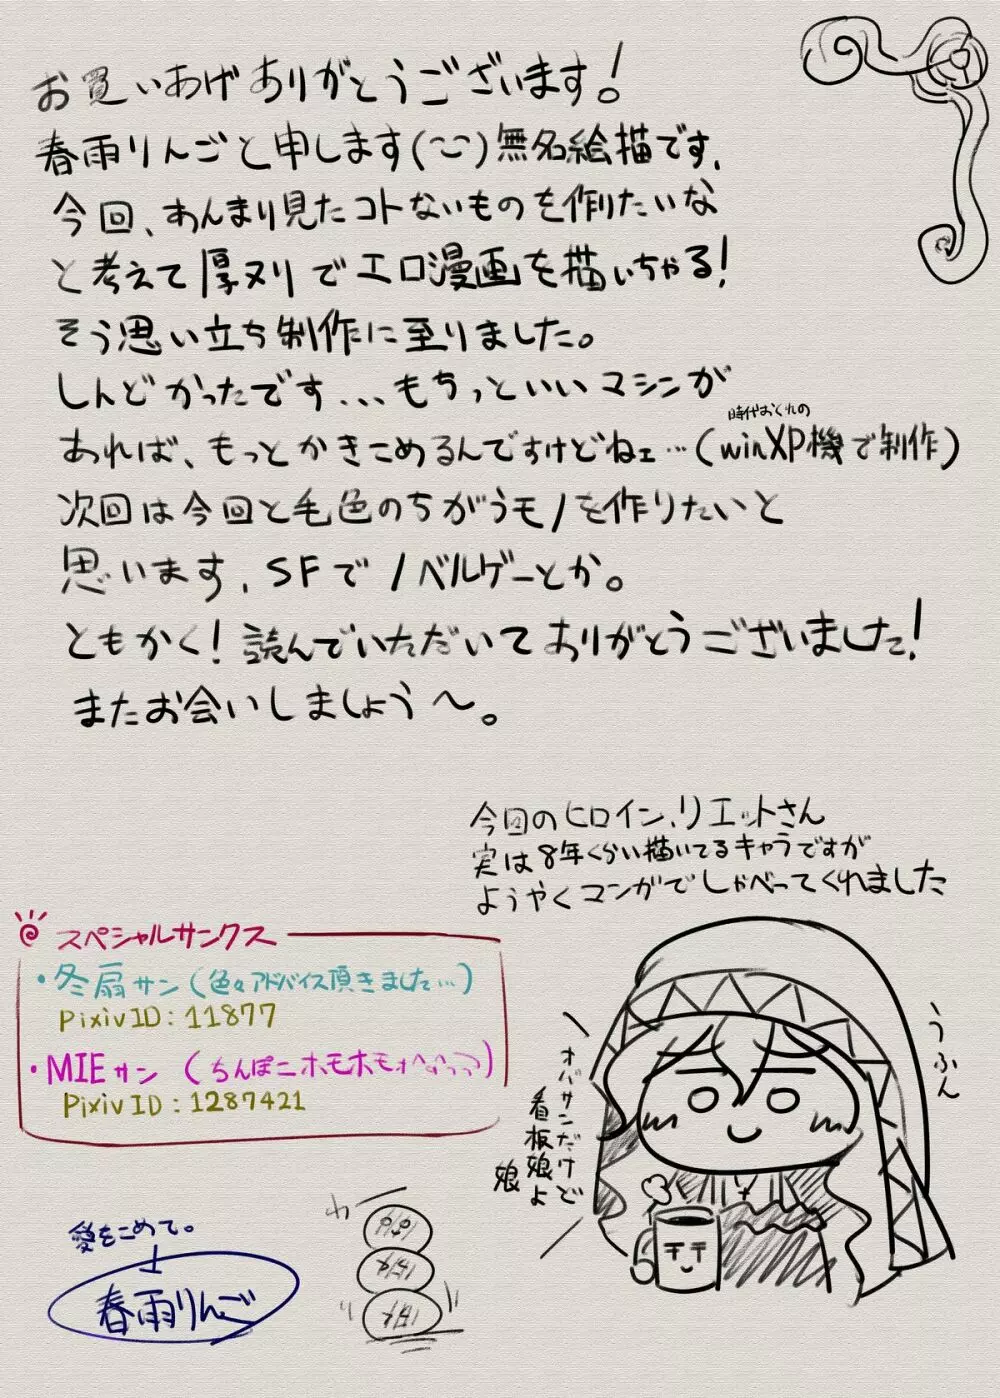 お買いあげありがとうございます!
春雨りんごと申します(~ニ)無名絵描です、
今回、あんまり見たコトないものを作りたいな
と考えて厚ヌリでエロ漫画を描いちゃる!
そう思い立ち制作に至りました。
しんどかったです...もちっといいマシンが
時代おくれの
あれば、もっとかきこめるんですけどねェ…(winXP機で制作)
次回は今回と毛色のちがうモノを作りたいと
思います、SFでノベルゲーとか。
ともかく!読んでいただいてありがとうございました!
またお会いしましょう～。
今回のヒロイン、リエットさん
実は8年くらい描いてるキャラですが
ようやくマンガでしゃべってくれました
スペシャルサンクス
・冬扇サン(色々アドバイス頂きました…)
Pixiv ID:11877
・MIEサン(ちんぽニホモホモ
Pixiv ID:1287421
うふん
オバサンだけど
看板娘よ
娘
愛をこめて。
春雨りんご
わ